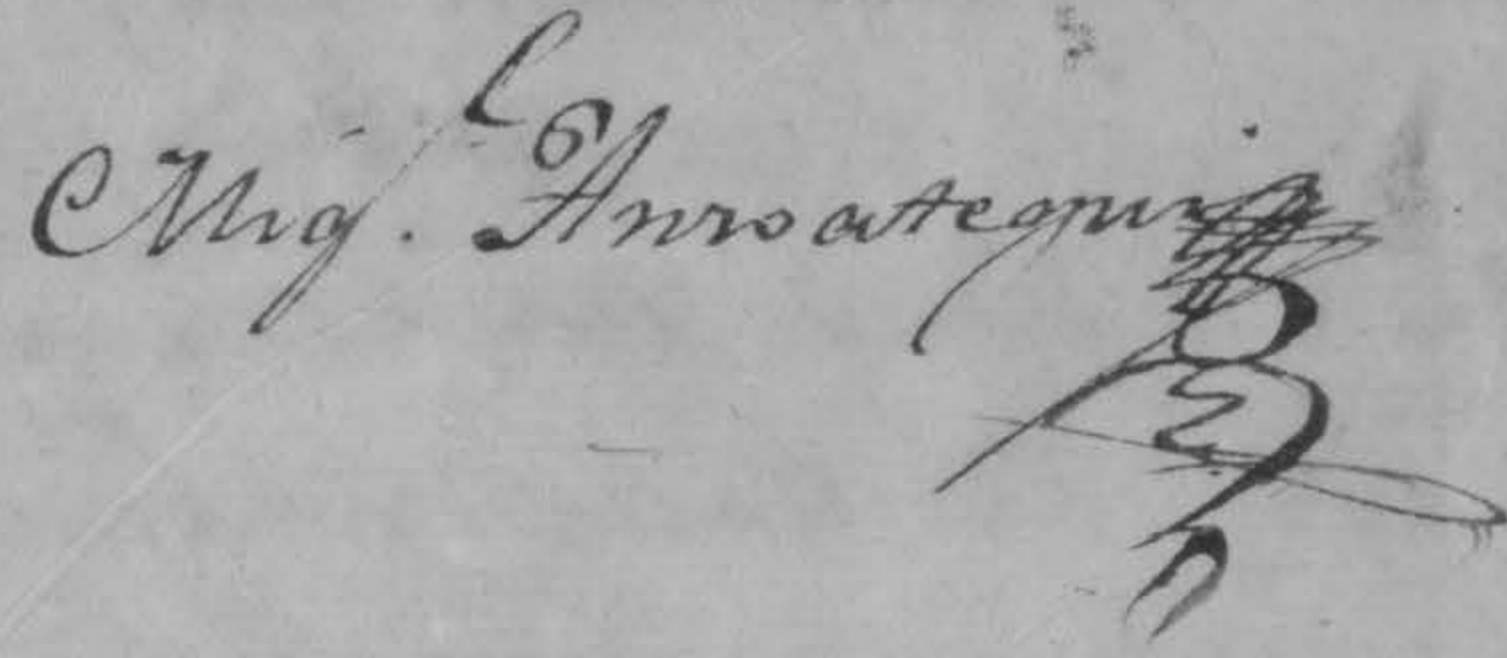 Mig.l Anroategui